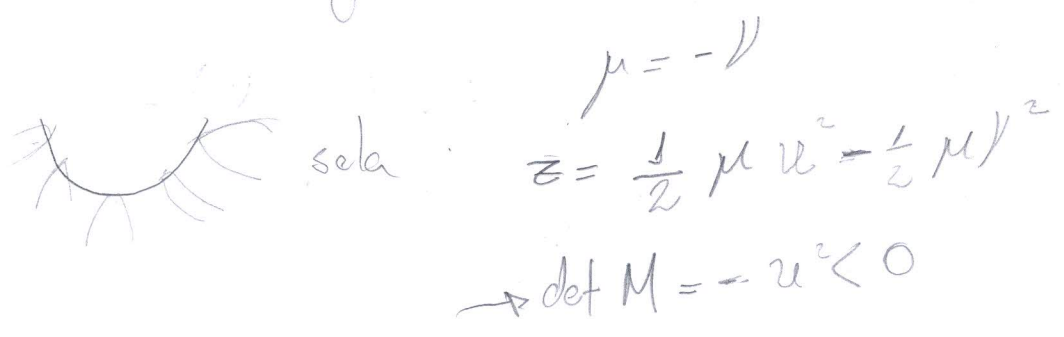 μ = -ν
sela
z = 1/2 μ u² - 1/2 μ ν²
→ det M = - u² < 0